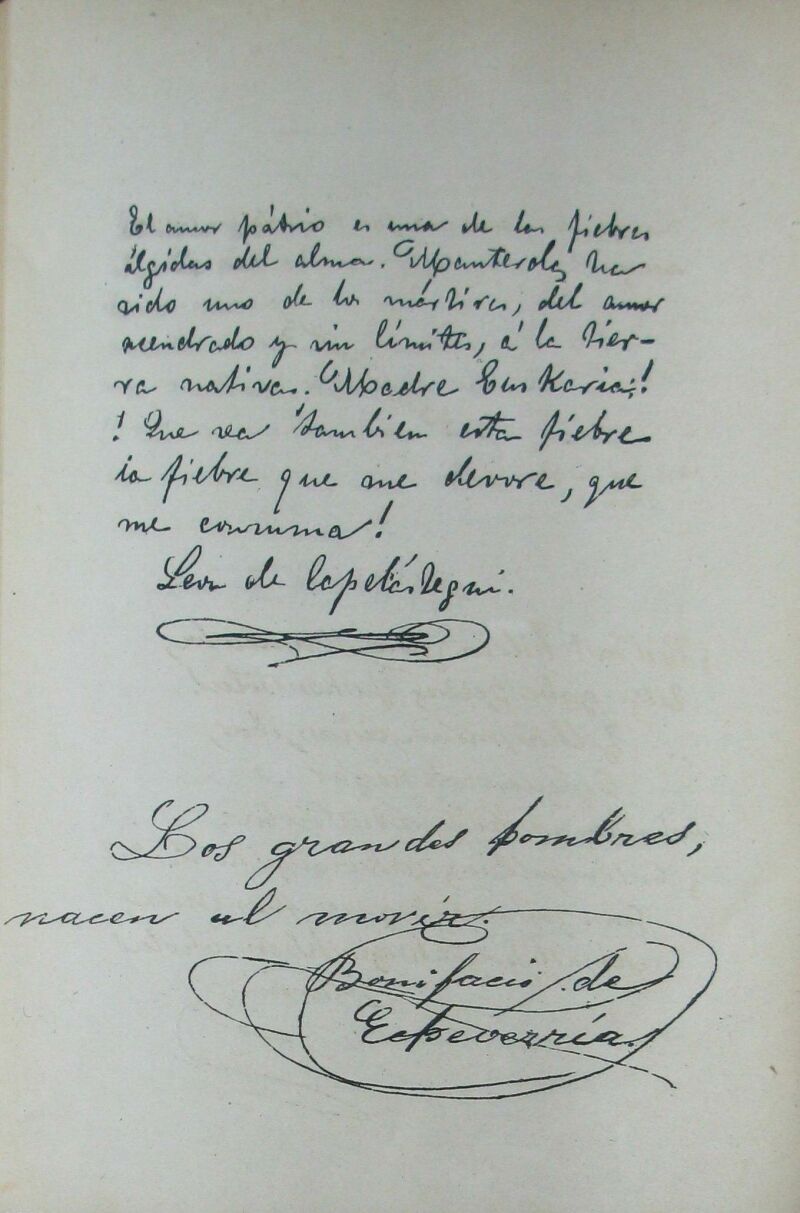 El amor pátrio es una de las fiebres
álgidas del alma. Manterola, ha
sido uno de los mártires, del amor
acendrado y sin límites, á la tier-
ra nativa. Madre Euskaria!
! Que sea tambien esta fiebre
la fiebre que me devore, que
me consuma!
Leon de Lapeästegui.
Los grandes hombres,
nacen al morir.
Bonifacio de
Echeverría.